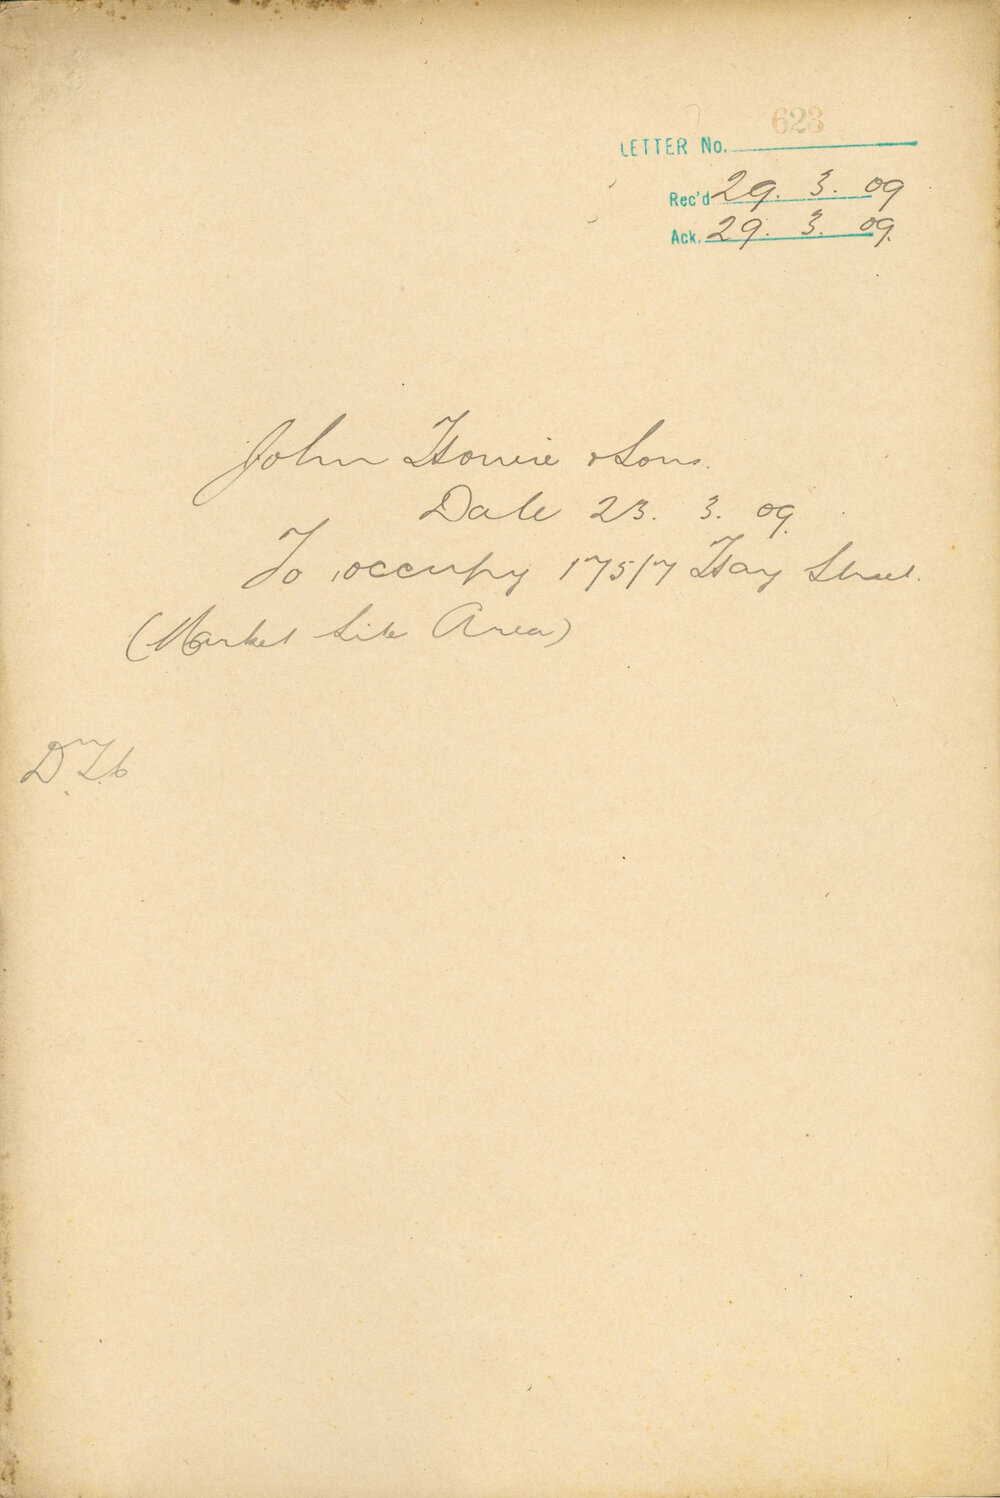 623
LETTER No.
Rec'd 29. 3. 09
Ack. 29. 3. 09.
John Howie & Sons.
Date 23. 3. 09.
To occupy 175/7 Hay Street.
(Market Site Area)